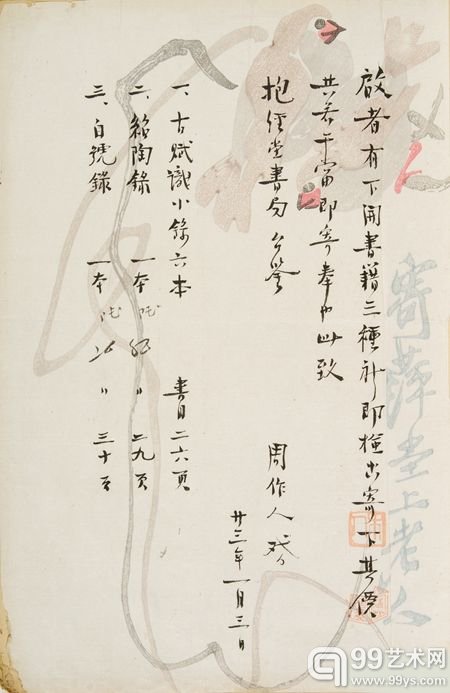 寄萍堂上老人
啟者有下開書籍三種祈即檢出寄下其價
共若干當即寄奉此致
抱經堂書局 台鑒
周作人
廿三年一月三日
一、古賦識小錄六本 書目二六頁
二、紹陶錄 一本 〃 二九頁
三、自號錄 一本 〃 三十頁
99艺术网
www.99ys.com